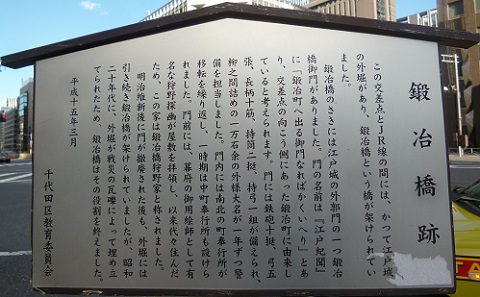 鍛冶橋跡
この交差点とJR線の間には、かつて江戸城
の外堀があり、鍛冶橋という橋が架けられてい
ました。
鍛冶橋のさきには江戸城の外郭門の一つ鍛冶
橋御門がありました。門の名前は『江戸紀聞』
に「鍛冶町へ出る御門なればかくいへり」とあ
り、交差点の向こう側にあった鍛冶町に由来し
ていると考えられます。門には鉄砲十挺、弓五
張、長柄十筋、持筒二挺、持弓一組が備えられ、
柳之間詰めの一万石余の外様大名が一年ずつ警
備を担当しました。門内には南北の町奉行所が
移転を繰り返し、一時期は中町奉行所も設けら
れました。門前には、幕府の御用絵師として有
名な狩野探幽が屋敷を拝領し、以来代々住んだ
ため、この家は鍛冶橋狩野家と称されました。
明治維新後に門が撤廃された後も、外堀には
引き続き鍛冶橋が架けられていましたが、昭和
二十年代に、外堀が戦災の瓦礫によって埋め立
てられたため、鍛冶橋はその役割を終えました。
平成十五年三月
千代田区教育委員会